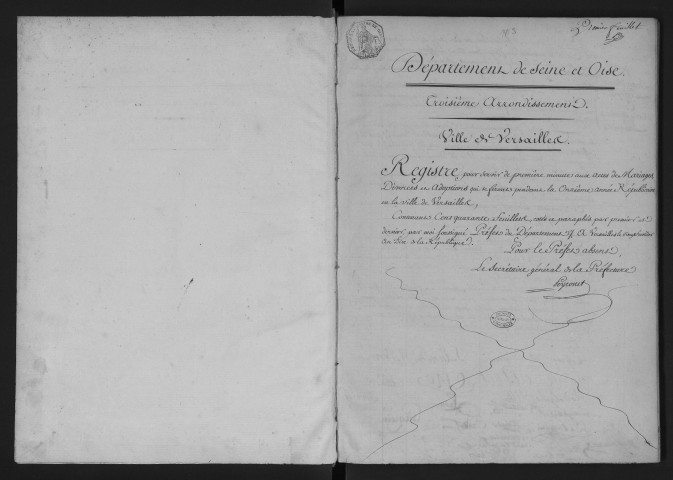 Premier feuillet
Département de Seine et Oise.
Troisième Arrondissement.
Ville de Versailles.
Registre pour servir de première minute aux actes de Mariages,
Divorces et Adoptions qui se feront pendant la Onzième année Républicaine
en la ville de Versailles,
Contenant Cent quarante feuillets, cotté et paraphés par premier et
dernier, par moi soussigné Préfet du Département. A Versailles le
an Dix de la République.
Pour le Préfet absent,
Le Secrétaire général de la Préfecture
Peyronet